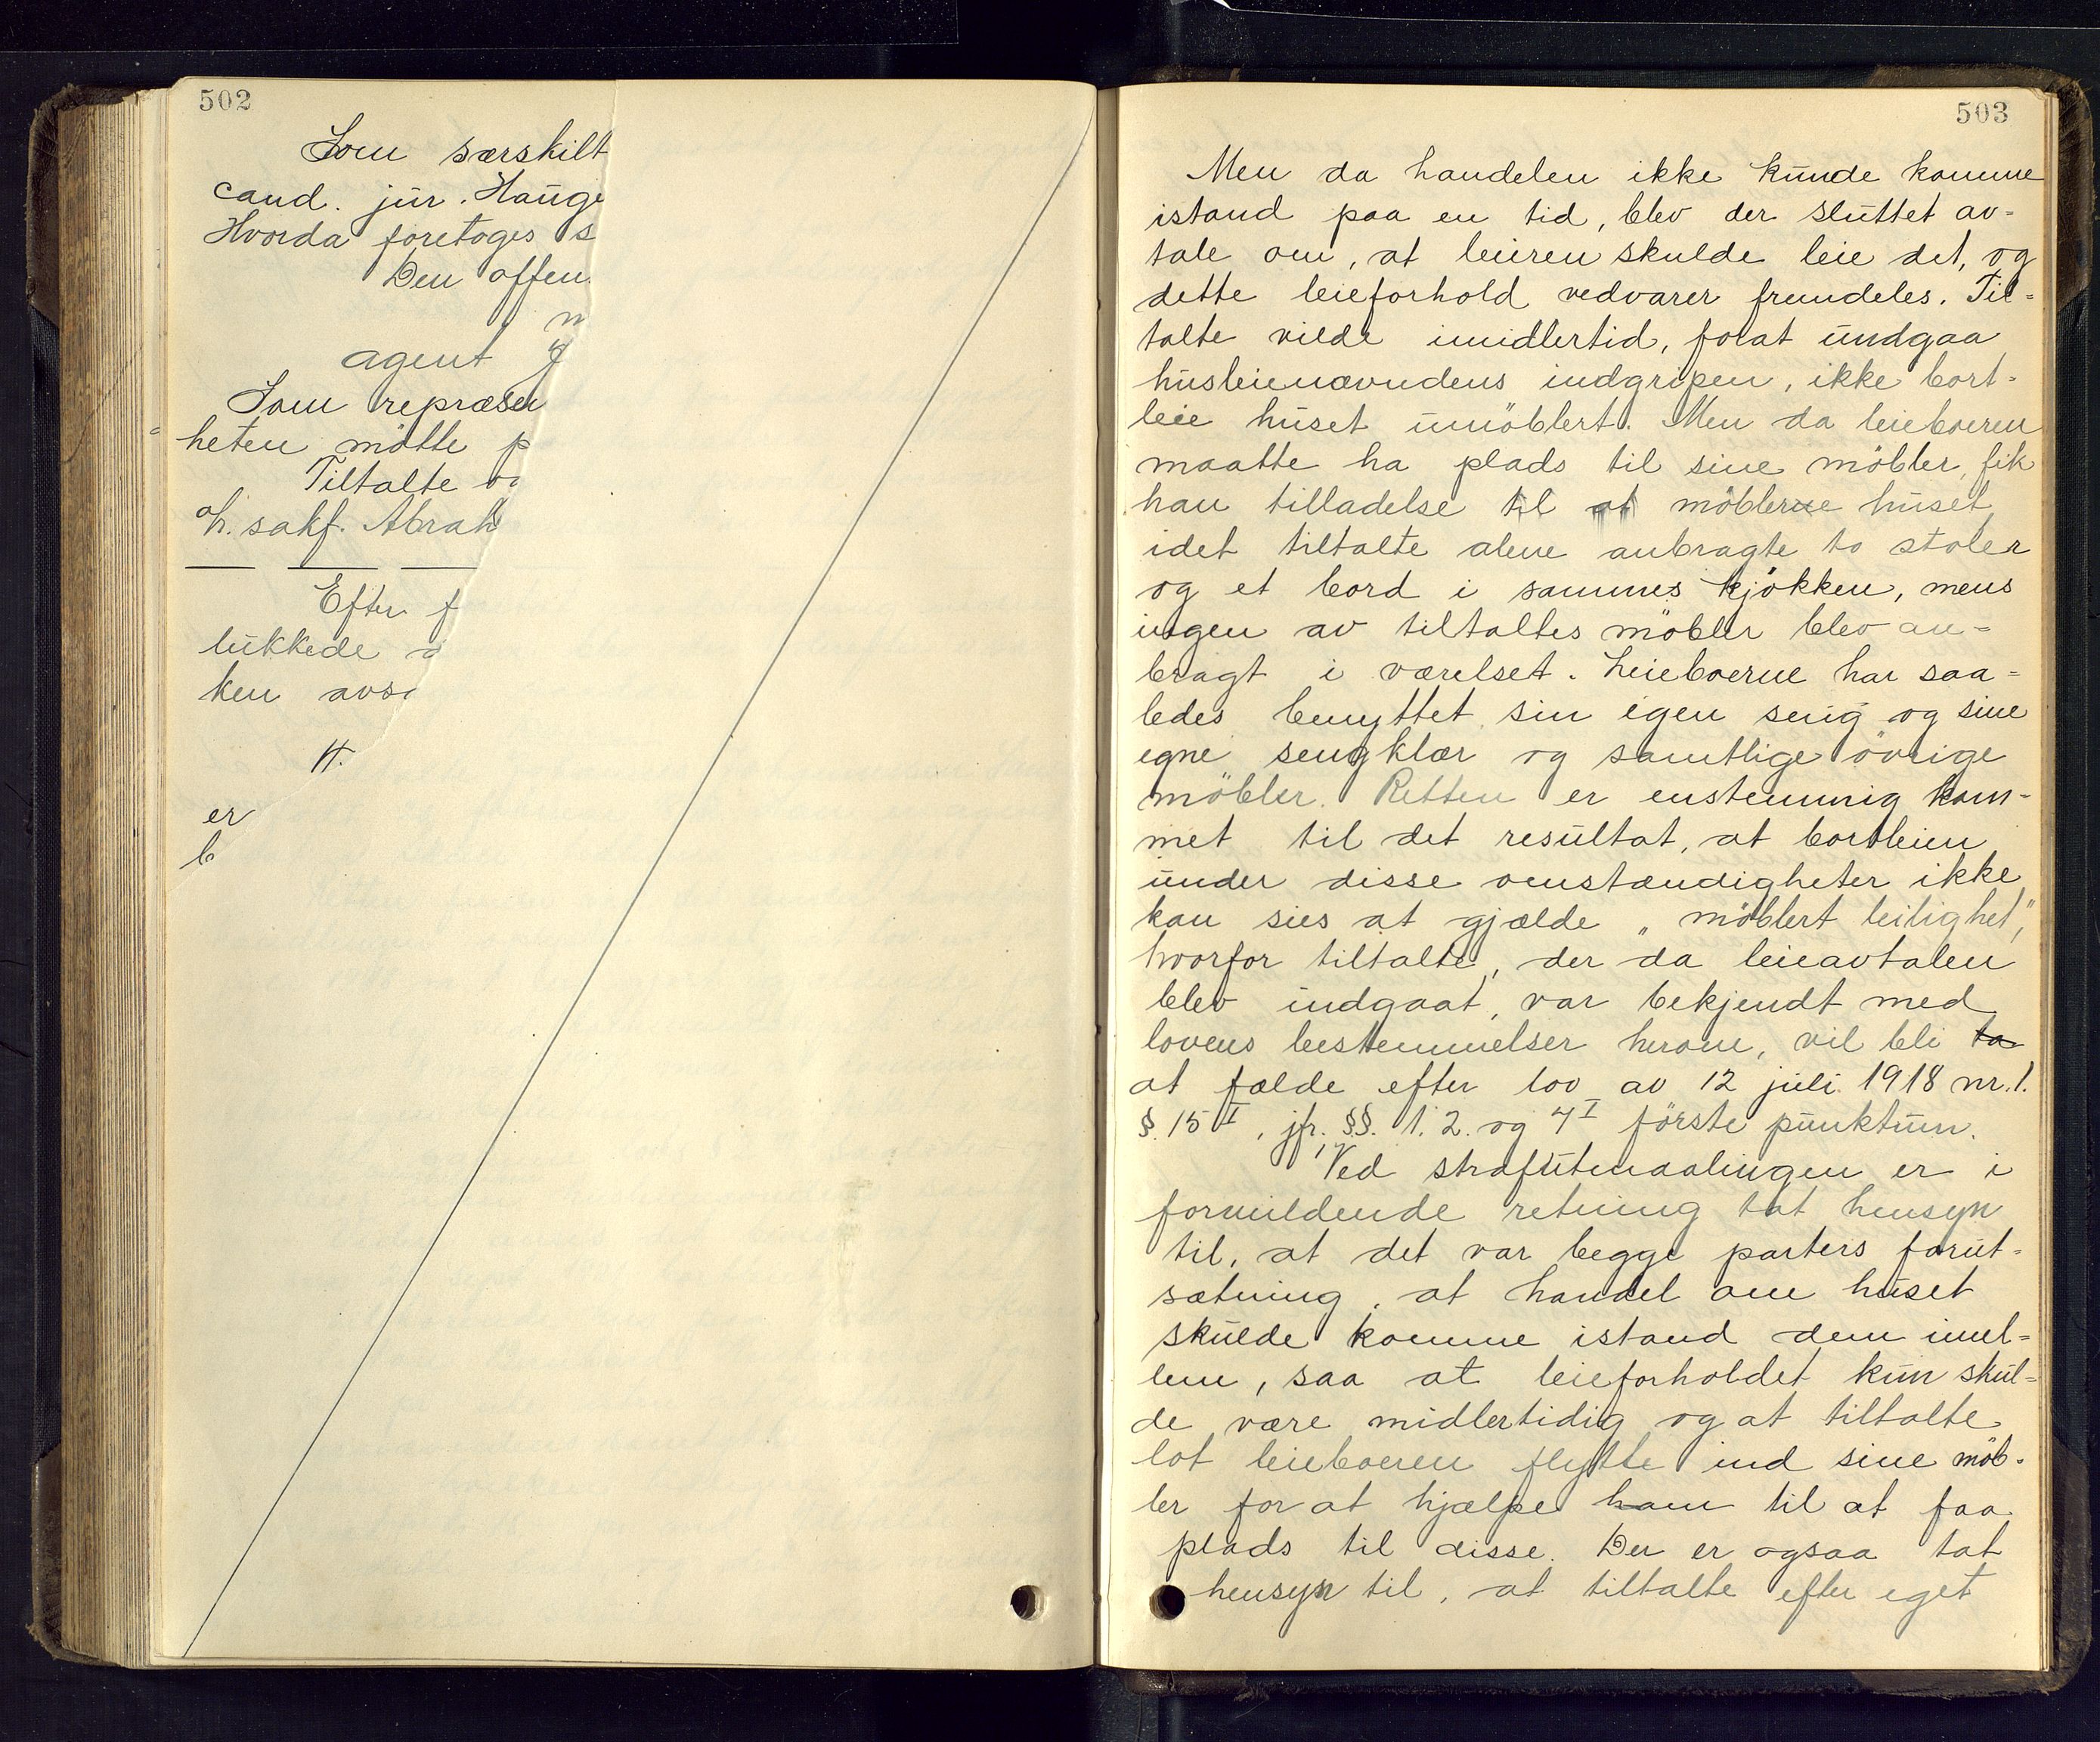 502
Som særskilt
cand. jur. Hauge
Hvorda foretoges s
Den offen
m
agent J
Som repræsen
heten mötte p
Tiltalte og
h. sakf. Abrah
Efter f
lukkede
ken avsi
H.
er
b
503
Men da handelen ikke kunde komme
istand paa en tid, blev der sluttet av=
tale om, at leieren skulde leie det, og
dette leieforhold vedvarer fremdeles. Til=
talte vilde imidlertid, forat undgaa
husleienævndens indgripen, ikke bort=
leie huset umöblert. Men da leieboeren
maatte ha plads til sine möbler, fik
han tilladelse til at möblere huset,
idet tiltalte alene anbragte to stoler
og et bord i sammes kjökken, mens
ingen av tiltaltes möbler blev an=
bragt i værelset. Leieboerne har saa=
ledes benyttet sin egen seng og sine
egne sengklær og samtlige övrige
möbler. Retten er enstemmig kom-
met til det resultat, at bortleien
under disse omstændigheter ikke
kan sies at gjælde „möblert leilighet",
hvorfor tiltalte, der da leieavtalen
blev indgaat, var bekjendt med
lovens bestemmelser herom, vil bli ta
at fælde efter lov av 12 juli 1918 nr. 1.
§. 15 I, jfr. §§. 1. 2. og 4 I förste punktum.
Ved strafutmaalingen er i
formildende retning tat hensyn
til, at det var begge parters forut=
sætning, at handel om huset
skulde komme istand dem imel=
lem, saa at leieforholdet kun skul=
de være midlertidig og at tiltalte
lot leieboeren flytte ind sine möb=
ler for at hjælpe ham til at faa
plads til disse. Der er ogsaa tat
hensyn til, at tiltalte efter eget